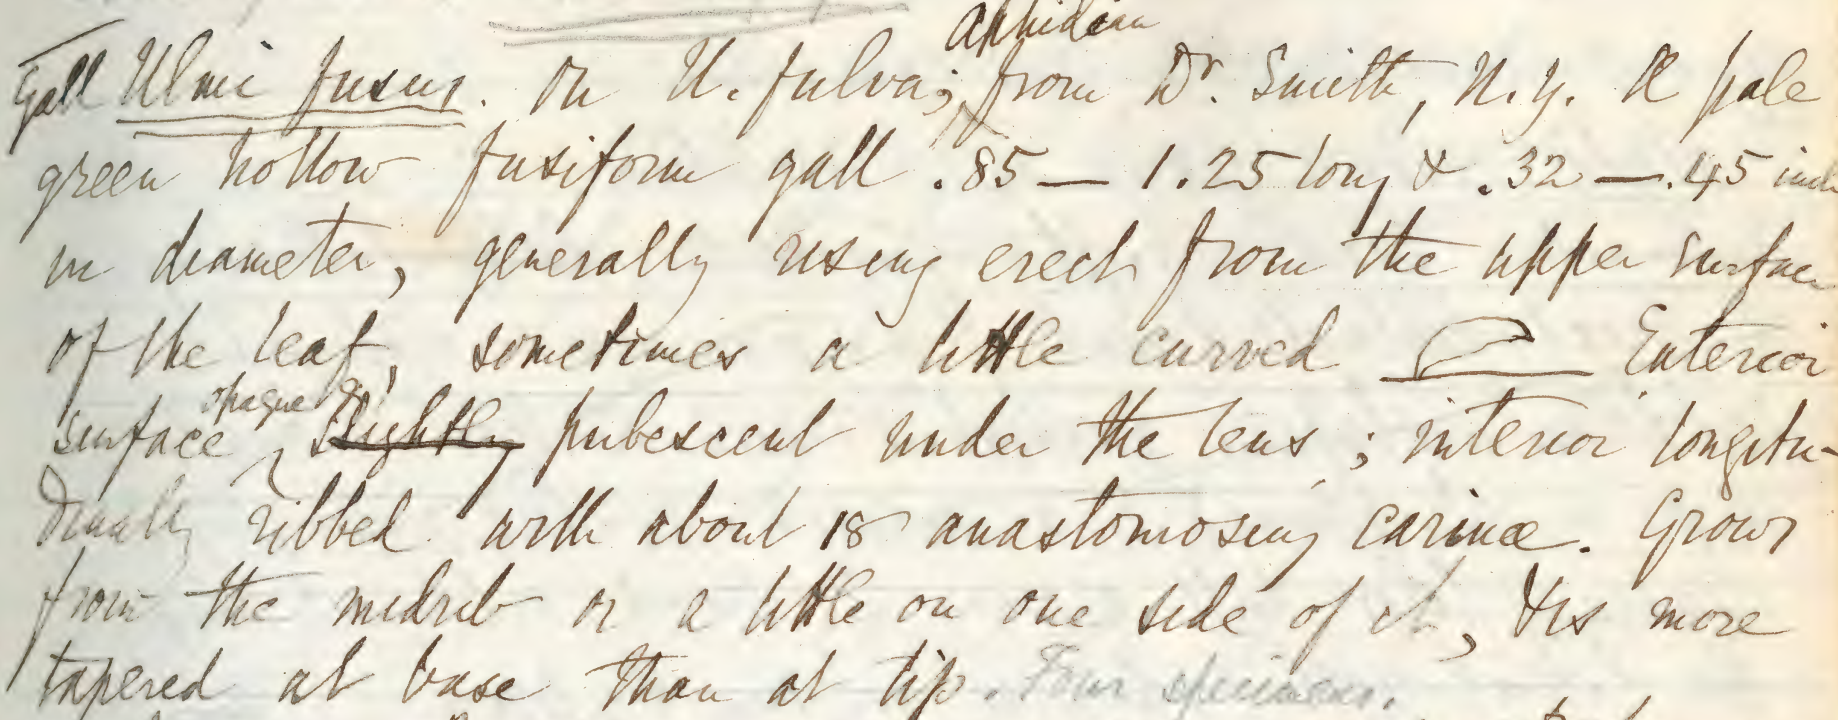 aphidian
Gall Ulmi fusus. On U. fulva; from Dr. Smith, N.Y. A pale
green hollow fusiform gall .85 — 1.25 long & .32 — .45 inch
in diameter, generally rising erect from the upper surface
of the leaf, sometimes a little curved Exterior
opaque &
surface slightly pubescent under the lens; interior longitu-
dinally ribbed with about 18 anastomosing carinae. Grows
from the midrib or a little on one side of it, & is more
tapered at base than at tip. Four specimens.